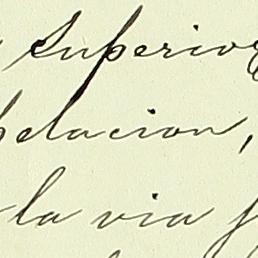 Superior
pelacion,
la via